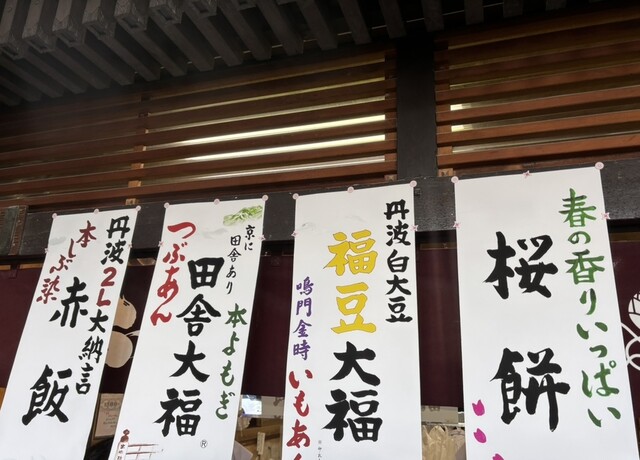 春の香りいっぱい
桜餅
丹波白大豆
福豆大福
鳴門金時いもあん
京に田舎あり
本よもぎ
田舎大福
®
つぶあん
丹波2L大納言
赤飯
本しぶ染